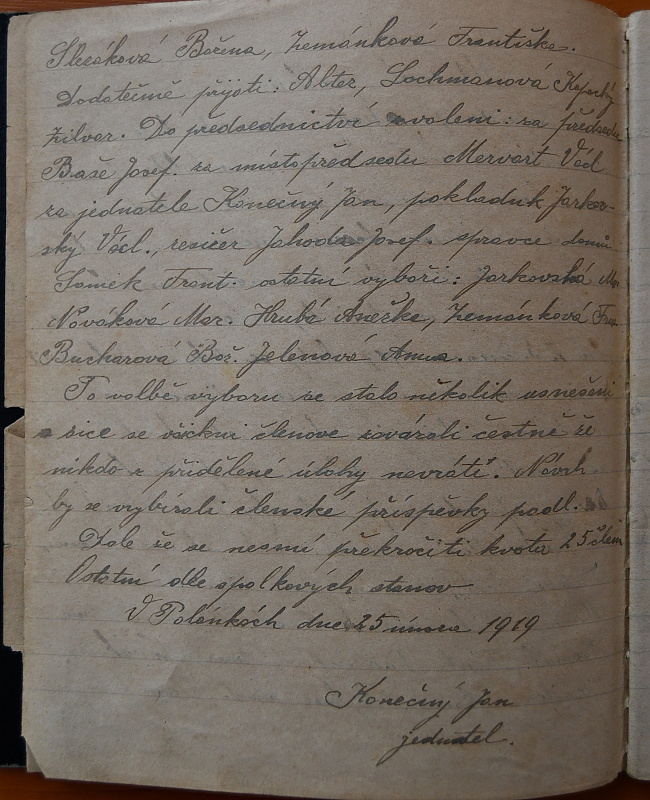 Slezáková Božena, Zemánková Františka.
Dodatečně přijoti: Alter, Lochmanová Kopecký
Žilvar. Do předsednictví zvoleni: za předsedu
Baše Josef. za místopředsedu Mervart Václ
za jednatele Konečný Jan, pokladník Jarkov-
ský Václ., režiser Jahoda Josef. správce domu
Samek Frant. ostatní výboři: Jarkovská Mar.
Nováková Mar. Hrubá Anežka, Zemánková Fran.
Bucharová Bož. Jelenová Anna.
To volbě výboru se stalo několik usnešení
sice se všickni členove zavázali čestně že
nikdo z přidělené úlohy nevrátí. Návrh
by se vybírali členské příspěvky podl.
Dále že se nesmí překročiti kvota 25 členů
Ostatní dle spolkových stanov
V Polánkách dne 25 února 1919
Konečný Jan
jednatel.